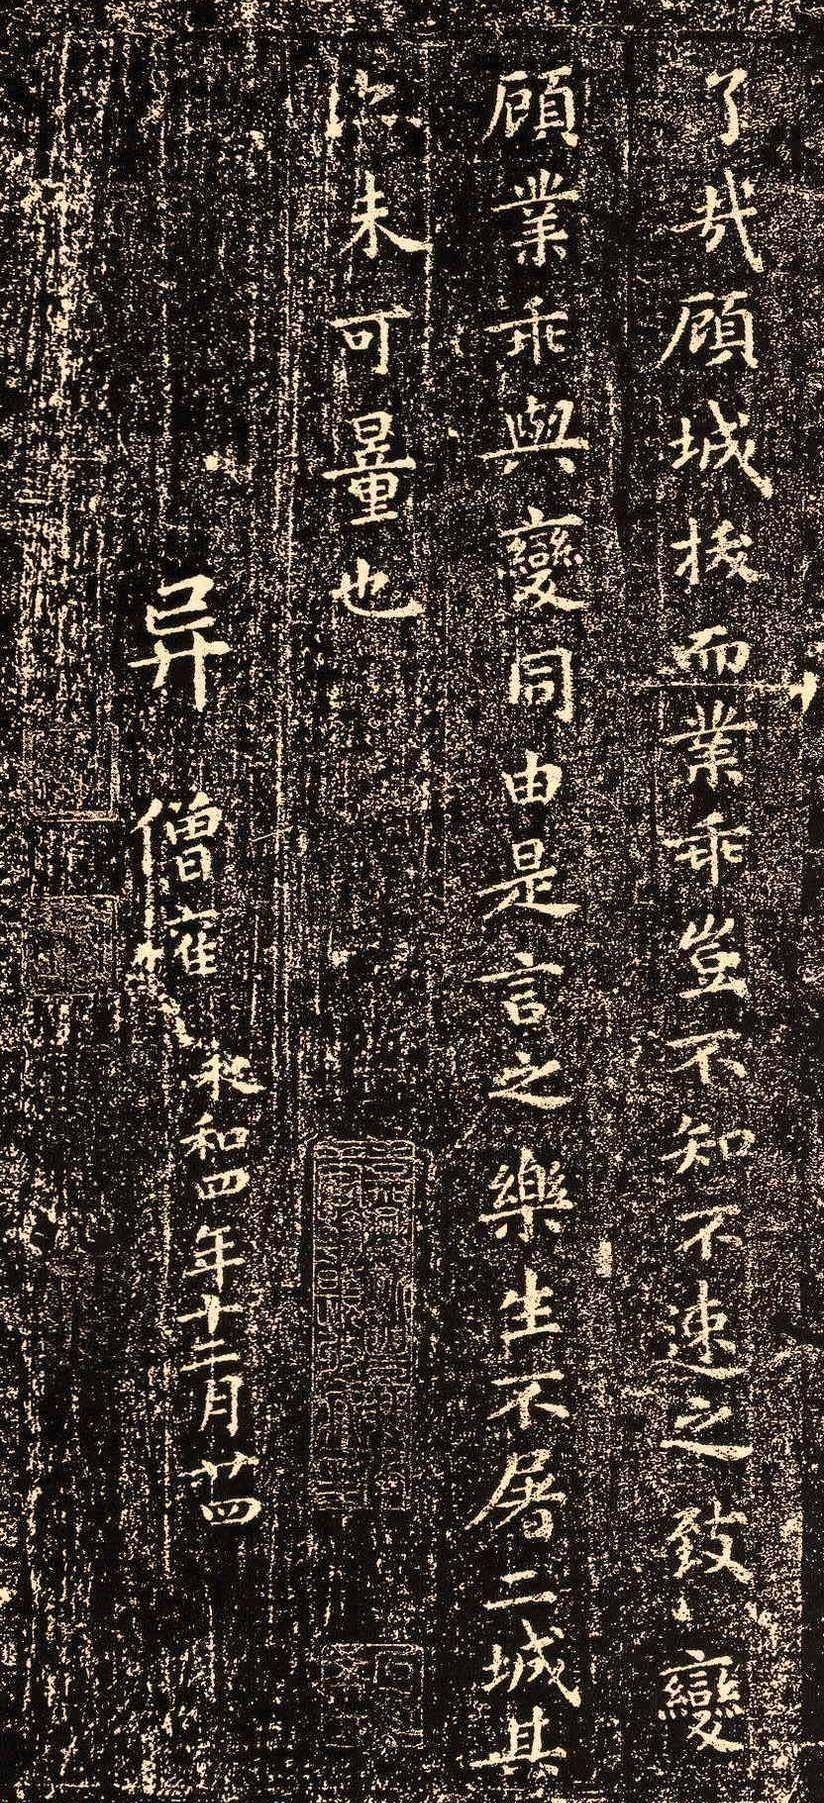 了哉顧城拔而業乖豈不知不速之致變
顧業乖與變同由是言之樂生不屠二城其
未可量也
异 僧權 永和四年十二月廿四